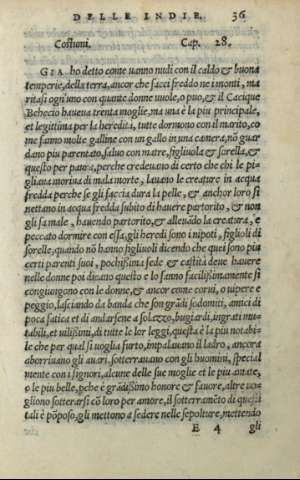 DELLE INDIE. 36
Costumi. Cap. 28.
GIA ho detto come uanno nudi con il caldo & buona
temperie, della terra, ancor che facci freddo ne i monti, ma
ritasi ogn'uno con quante donne uuole, o puo, & il Cacique
Behecio haueua trenta moglie, ma una è la piu principale,
et legittima per la heredità, tutte dormono con il marito, co
me fanno molte galline con un gallo in una camera, nō guar
dano piu parentato, saluo con matre, figliuola & sorella, &
questo per paura, perche credeuano di certo che chi le pi-
gliaua moriua di mala morte, lauano le creature in acqua
fredda perche se gli faccia dura la pelle, & anchor loro si
nettano in acqua fredda subito di hauere partorito, & non
gli fa male, hauendo partorito, & alleuādo la creatura, è
peccato dormire con essa, gli heredi sono i nipoti, figliuoli di
sorelle, quando nō hanno figliuoli dicendo che quei sono piu
certi parenti suoi, pochissima fede & castità deue hauere
nelle donne poi dicano questo e lo fanno facilissimamente si
congiungono con le donne, & ancor come corui, o uipere e
peggio, lasciando da banda che son grādi sodomiti, amici di
poca fatica et di andarsene a solazzo, bugiardi, ingrati mu-
tabili, et uilissimi, di tutte le lor leggi, questa è la piu notabi-
le che per qual si uoglia furto, impalauano il ladro, ancora
aborriuano gli auari, sotterrauano con gli huomini, special
mente con i signori, alcune delle sue moglie et le piu amate,
o le piu belle, ꝑche è grādissimo honore & fauore, altre uo-
gliono sotterarsi cō loro per amore, il sotterramēto di questi
tali è pōposo, gli mettono a sedere nelle sepolture, mettendo
E 4 gli